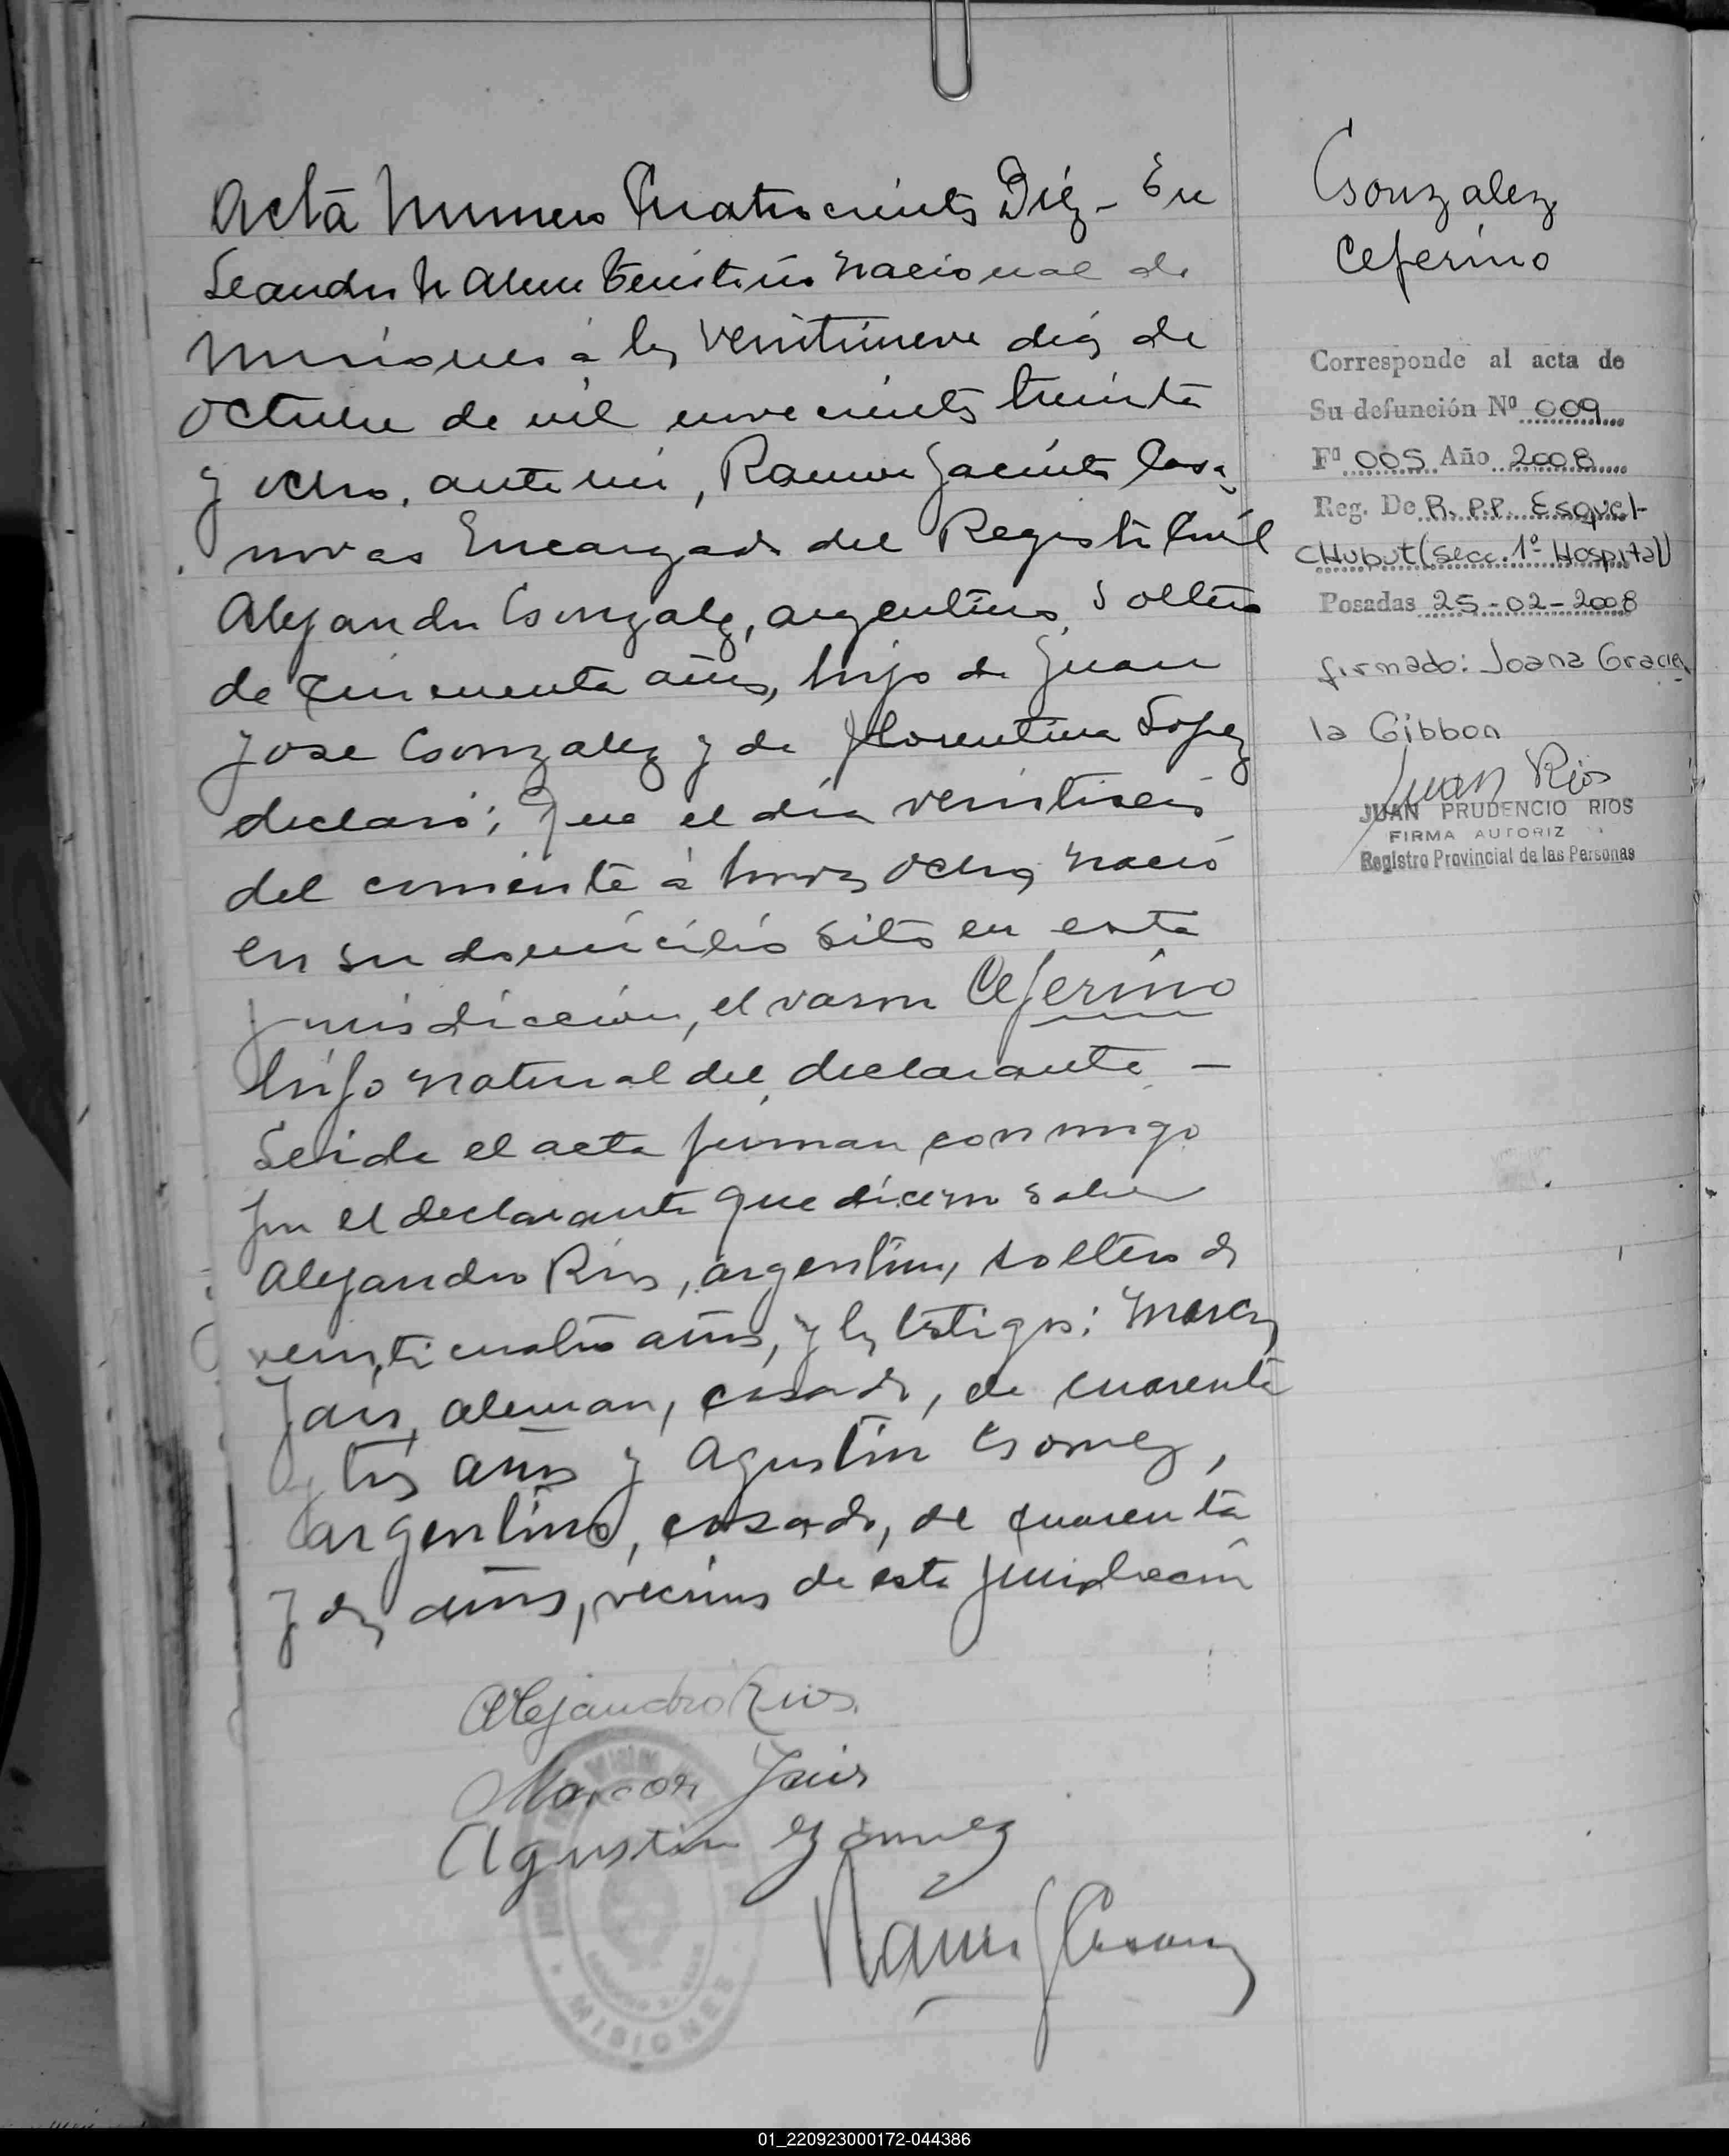 Acta Numero Cuatrocientos Diéz - En
Leandro N Alem Territorio Nacional de
Misiones á los Veintinueve dias de
Octubre de mil novecientos treinta
y ocho, ante mi, Ramon Jacinto Casa
novas Encargado del Registro Civil
Alejandro Gonzalez, argentino, soltero
de cincuenta años, hijo de Juan
Jose Gonzalez y de Florentina Lopez
declaró; Que el dia veintiseis
del corriente á horas ocho, nació
en su domicilio sito en esta
jurisdiccion, el varon Ceferino
hijo natural del declarante -
Leida el acta firman conmigo
por el declarante que dice no saber
Alejandro Rios, argentino, soltero de
veinticuatro años, y los testigos: Marcos
Jais, aleman, casado, de cuarenta
y tres años y Agustin Gomez,
argentino, casado, de cuarenta
y dos años, vecinos de esta jurisdiccion
Alejandro Rios.
Marcos Jais
Agustin Gomez
MISIONES
Gonzalez
Ceferino
Corresponde al acta de
Su defunción Nº 009
Fº 005 Año 2008
Reg. De R. P.P. Esquel-
CHubut (secc. 1º Hospital)
Posadas 25-02-2008
firmado: Joana Gracie
la Gibbon
Juan Rios
JUAN PRUDENCIO RIOS
FIRMA AUTORIZ
Registro Provincial de las Personas
01_220923000172-044386